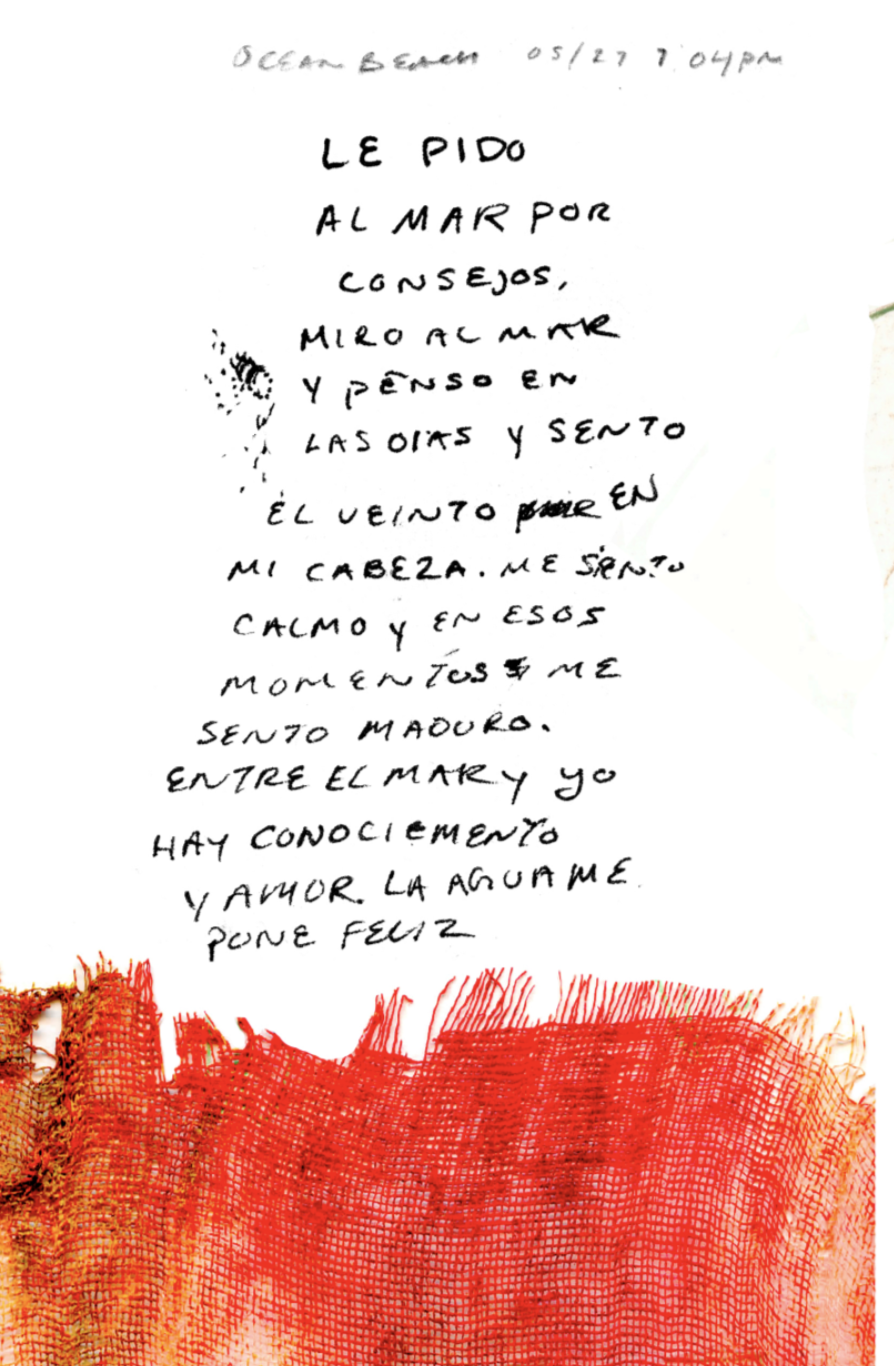 OCEAN BEACH 05/27 7:04PM
LE PIDO
AL MAR POR
CONSEJOS,
MIRO AL MAR
Y PENSO EN
LAS OLAS Y SENTO
EL VEINTO EN
MI CABEZA. ME SIENTO
CALMO Y EN ESOS
MOMENTOS ME
SENTO MADURO.
ENTRE EL MAR Y YO
HAY CONOCIEMENTO
Y AMOR. LA AGUA ME
PONE FELIZ